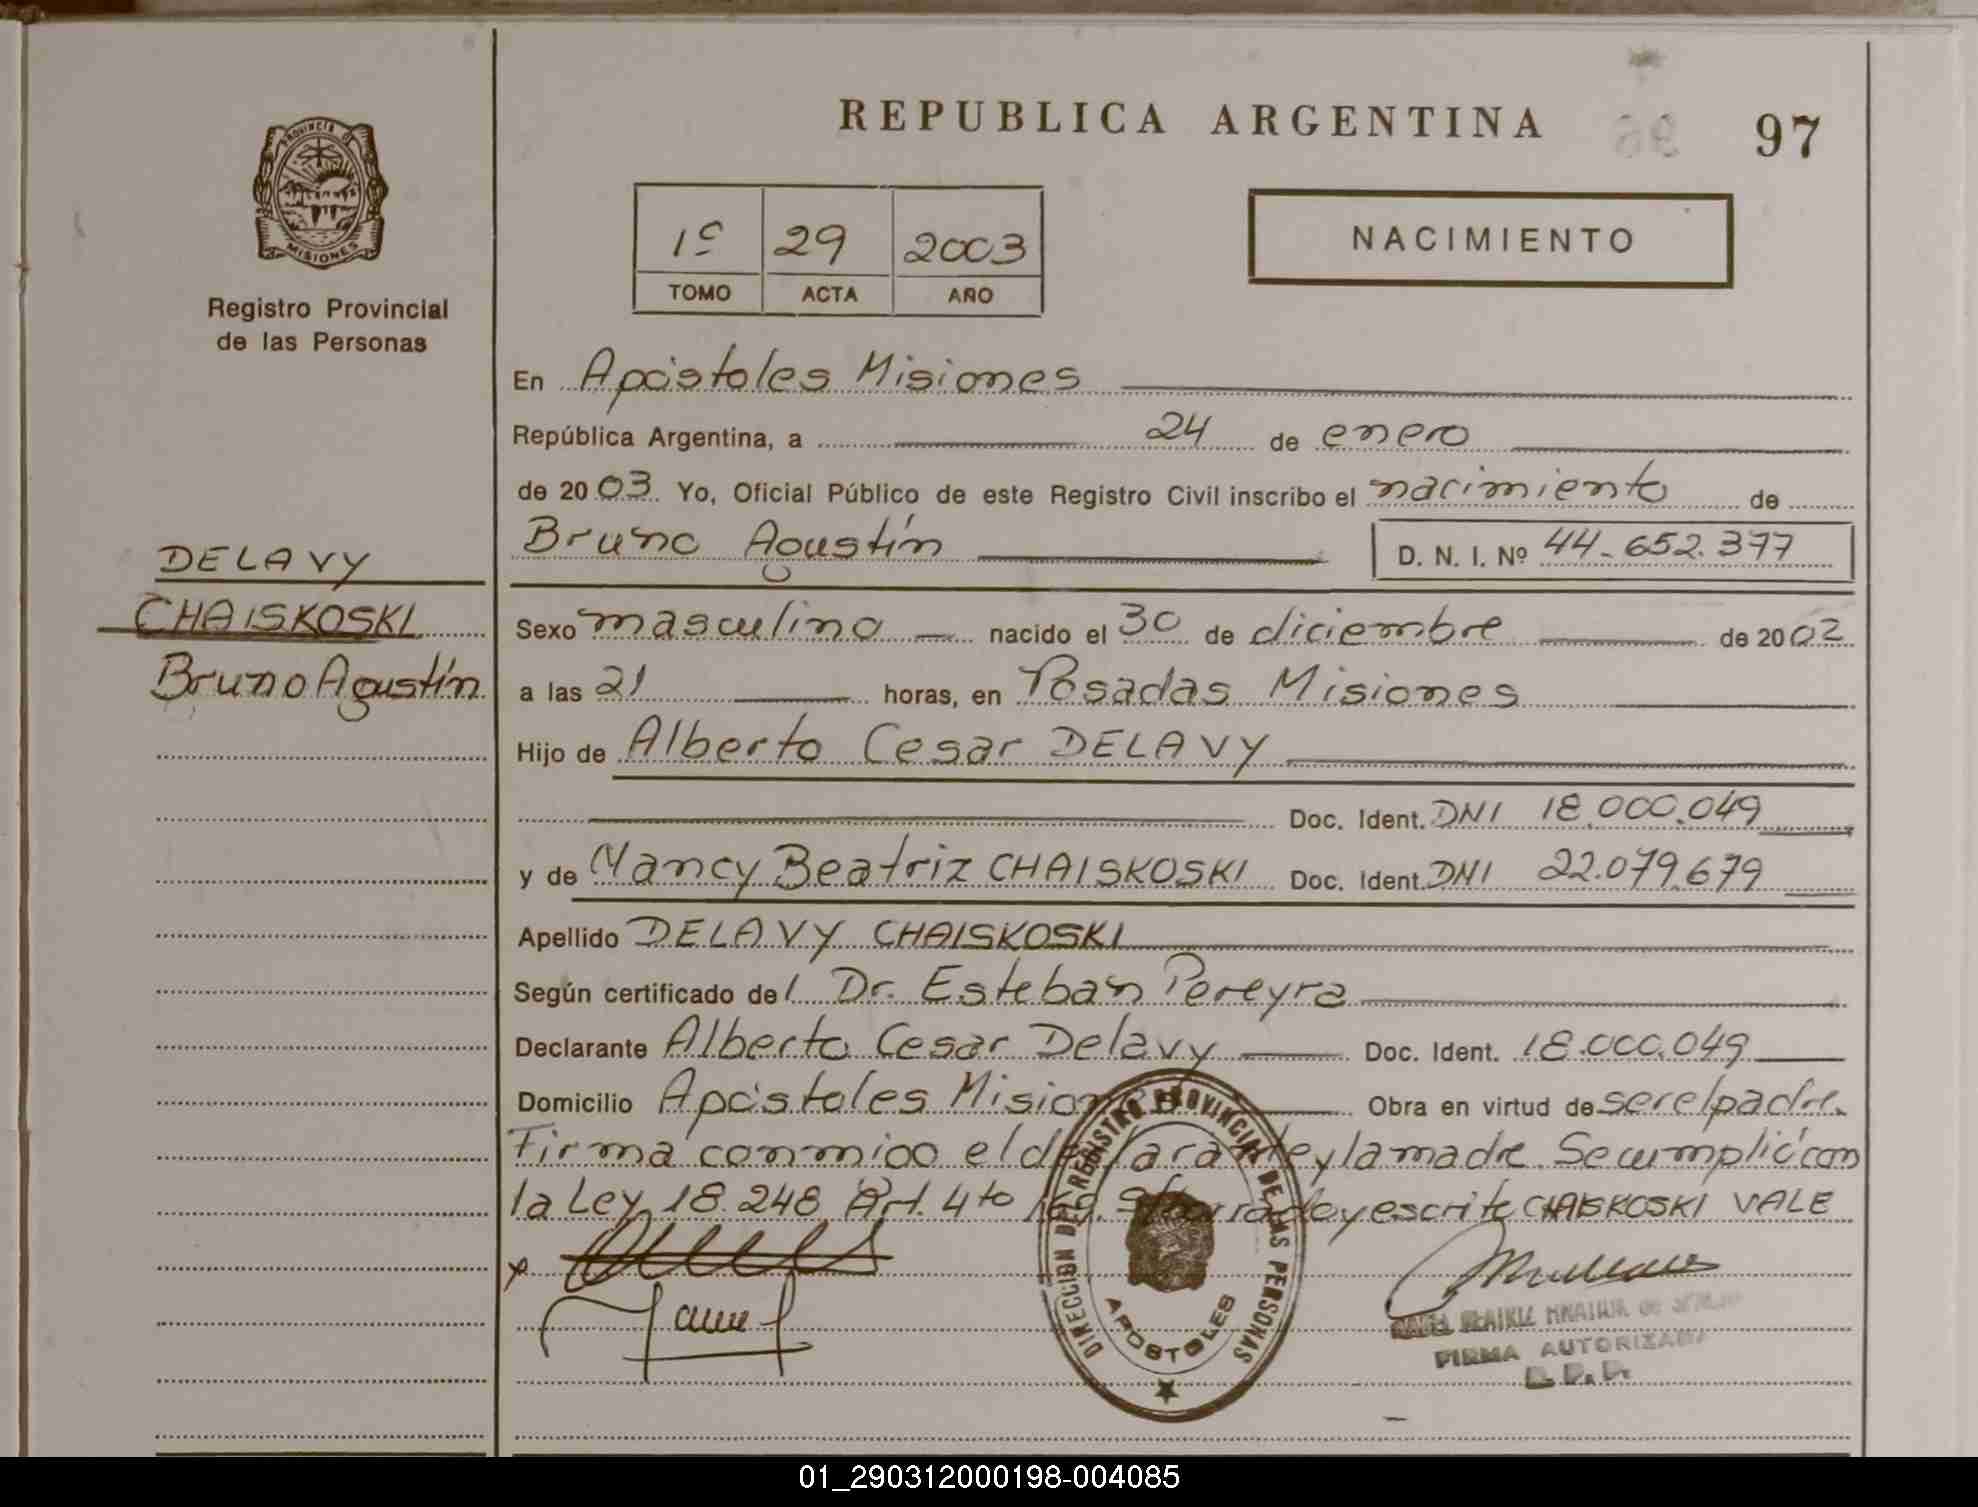 PROVINCIA DE
MISIONES
Registro Provincial
de las Personas
REPUBLICA ARGENTINA 97
1º 29 2003
TOMO ACTA AÑO
NACIMIENTO
En Apóstoles Misiones
República Argentina, a 24 de enero
de 2003. Yo, Oficial Público de este Registro Civil inscribo el nacimiento de
Bruno Agustín D. N. I. Nº 44.652.377
DELAVY
CHAISKOSKI
Bruno Agustín
Sexo masculino nacido el 30 de diciembre de 2002
a las 21 horas, en Posadas Misiones
Hijo de Alberto Cesar DELAVY
Doc. Ident. DNI 18.000.049
y de Nancy Beatriz CHAISKOSKI Doc. Ident. DNI 22.079.679
Apellido DELAVY CHAISKOSKI
Según certificado del Dr. Esteban Pereyra
Declarante Alberto Cesar Delavy Doc. Ident. 18.000.049
Domicilio Apóstoles Misiones Obra en virtud de ser el padre.
Firma conmigo el declarante y la madre. Se cumplió con
la Ley 18.248 Art. 4to borrado y escrito CHAISKOSKI VALE
DIRECCION DEL REGISTRO PROVINCIAL DE LAS PERSONAS
APOSTOLES
FIRMA AUTORIZADA
01_290312000198-004085